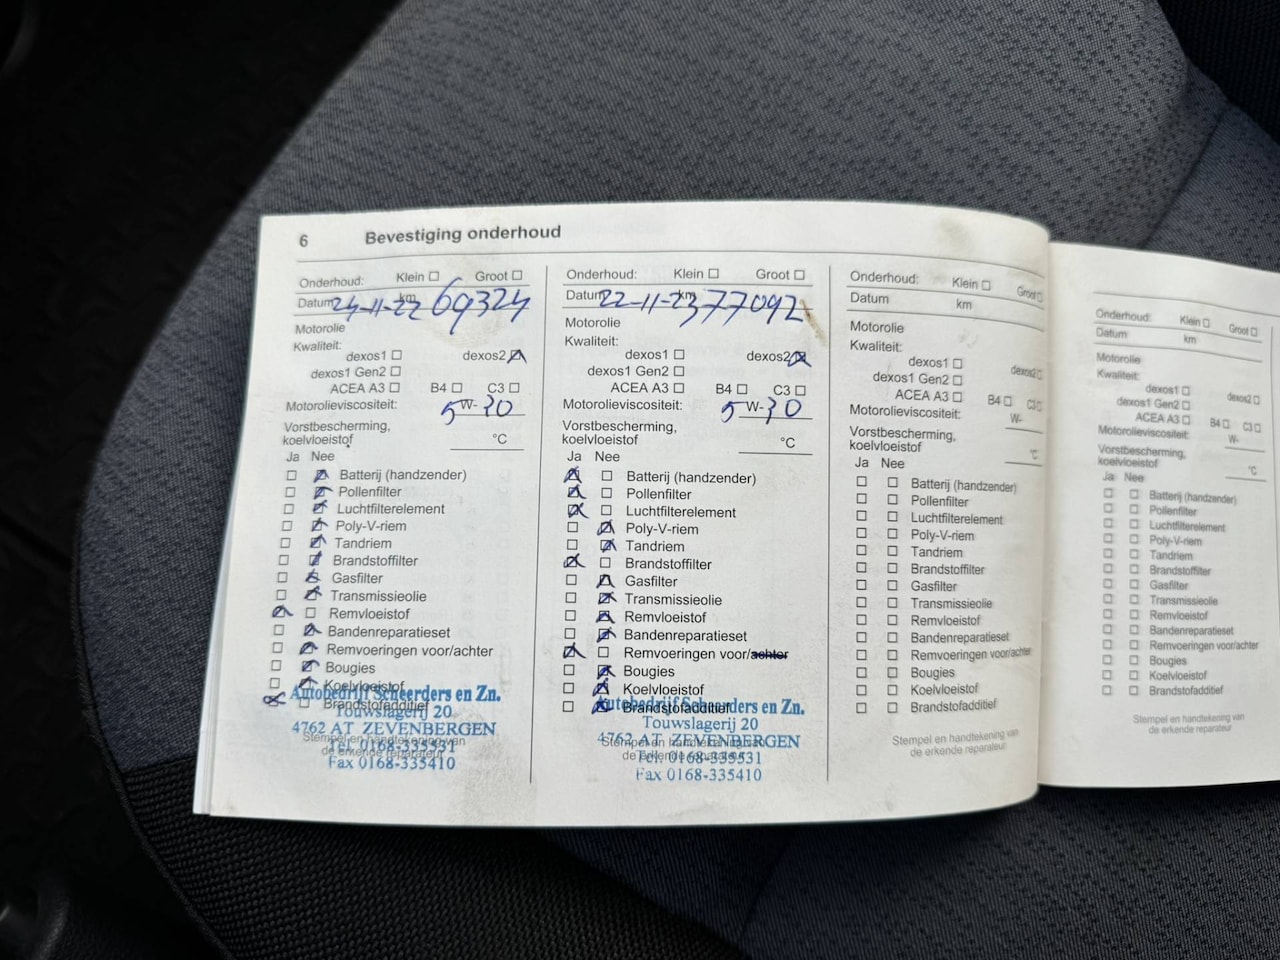 6 Bevestiging onderhoud
Onderhoud: Klein ☐ Groot ☐
Datum 24-11-22 km 69324
Motorolie
Kwaliteit:
dexos1 ☐ dexos2 ☒
dexos1 Gen2 ☐
ACEA A3 ☐ B4 ☐ C3 ☐
Motorolieviscositeit: 5 W- 30
Vorstbescherming,
koelvloeistof °C
Ja Nee
☐ ☒ Batterij (handzender)
☐ ☒ Pollenfilter
☐ ☒ Luchtfilterelement
☐ ☒ Poly-V-riem
☐ ☒ Tandriem
☐ ☒ Brandstoffilter
☐ ☒ Gasfilter
☐ ☒ Transmissieolie
☒ ☐ Remvloeistof
☐ ☒ Bandenreparatieset
☐ ☒ Remvoeringen voor/achter
☐ ☒ Bougies
☐ ☒ Koelvloeistof
☒ ☐ Brandstofadditief
Autobedrijf Scheerders en Zn.
Touwslagerij 20
4762 AT ZEVENBERGEN
Stempel en handtekening van
de erkende reparateur
Tel. 0168-335531
Fax 0168-335410
Onderhoud: Klein ☐ Groot ☐
Datum 22-11-23 km 77092
Motorolie
Kwaliteit:
dexos1 ☐ dexos2 ☒
dexos1 Gen2 ☐
ACEA A3 ☐ B4 ☐ C3 ☐
Motorolieviscositeit: 5 W- 30
Vorstbescherming,
koelvloeistof °C
Ja Nee
☒ ☐ Batterij (handzender)
☒ ☐ Pollenfilter
☒ ☐ Luchtfilterelement
☐ ☒ Poly-V-riem
☐ ☒ Tandriem
☒ ☐ Brandstoffilter
☐ ☒ Gasfilter
☐ ☒ Transmissieolie
☐ ☒ Remvloeistof
☐ ☒ Bandenreparatieset
☒ ☐ Remvoeringen voor/achter
☐ ☒ Bougies
☐ ☒ Koelvloeistof
☐ ☒ Brandstofadditief
Autobedrijf Scheerders en Zn.
Touwslagerij 20
4762 AT ZEVENBERGEN
Stempel en handtekening van
de erkende reparateur
Tel. 0168-335531
Fax 0168-335410
Onderhoud: Klein ☐ Groot ☐
Datum km
Motorolie
Kwaliteit:
dexos1 ☐ dexos2 ☐
dexos1 Gen2 ☐
ACEA A3 ☐ B4 ☐ C3 ☐
Motorolieviscositeit: W-
Vorstbescherming,
koelvloeistof °C
Ja Nee
☐ ☐ Batterij (handzender)
☐ ☐ Pollenfilter
☐ ☐ Luchtfilterelement
☐ ☐ Poly-V-riem
☐ ☐ Tandriem
☐ ☐ Brandstoffilter
☐ ☐ Gasfilter
☐ ☐ Transmissieolie
☐ ☐ Remvloeistof
☐ ☐ Bandenreparatieset
☐ ☐ Remvoeringen voor/achter
☐ ☐ Bougies
☐ ☐ Koelvloeistof
☐ ☐ Brandstofadditief
Stempel en handtekening van
de erkende reparateur
Onderhoud: Klein ☐ Groot ☐
Datum km
Motorolie
Kwaliteit:
dexos1 ☐ dexos2 ☐
dexos1 Gen2 ☐
ACEA A3 ☐ B4 ☐ C3 ☐
Motorolieviscositeit: W-
Vorstbescherming,
koelvloeistof °C
Ja Nee
☐ ☐ Batterij (handzender)
☐ ☐ Pollenfilter
☐ ☐ Luchtfilterelement
☐ ☐ Poly-V-riem
☐ ☐ Tandriem
☐ ☐ Brandstoffilter
☐ ☐ Gasfilter
☐ ☐ Transmissieolie
☐ ☐ Remvloeistof
☐ ☐ Bandenreparatieset
☐ ☐ Remvoeringen voor/achter
☐ ☐ Bougies
☐ ☐ Koelvloeistof
☐ ☐ Brandstofadditief
Stempel en handtekening van
de erkende reparateur